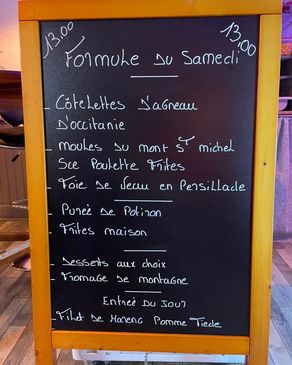 13.00
13.00
Formule Du Samedi
- Côtelettes D'agneau
D'occitanie
- moules du mont St michel
Sce Poulette Frites
- Foie de veau en Persillade
- Purée de Potiron
- Frites maison
- Desserts aux choix
- Fromage de montagne
Entrée Du Jour
- Filet de Hareng Pomme Tiède